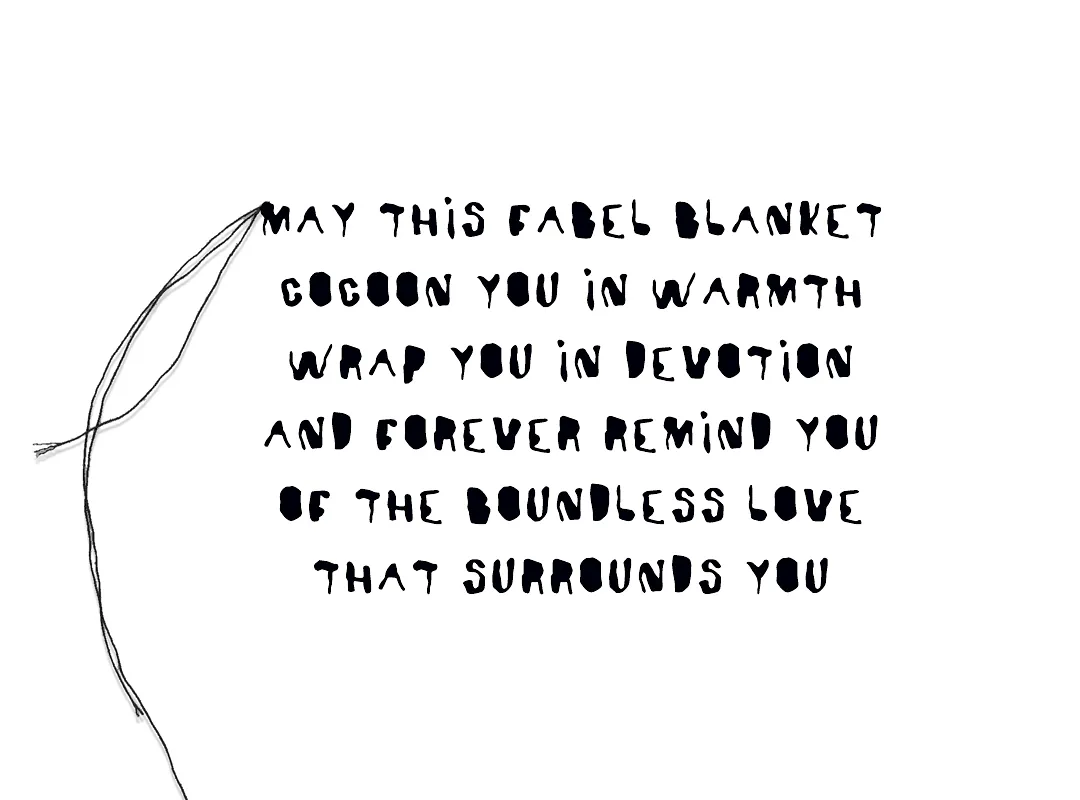 MAY THiS FABEL BLANKET
COCOON YOU iN WARMTH
WRAP YOU iN DEVOTiON
AND FOREVER REMiND YOU
OF THE BOUNDLESS LOVE
THAT SURROUNDS YOU